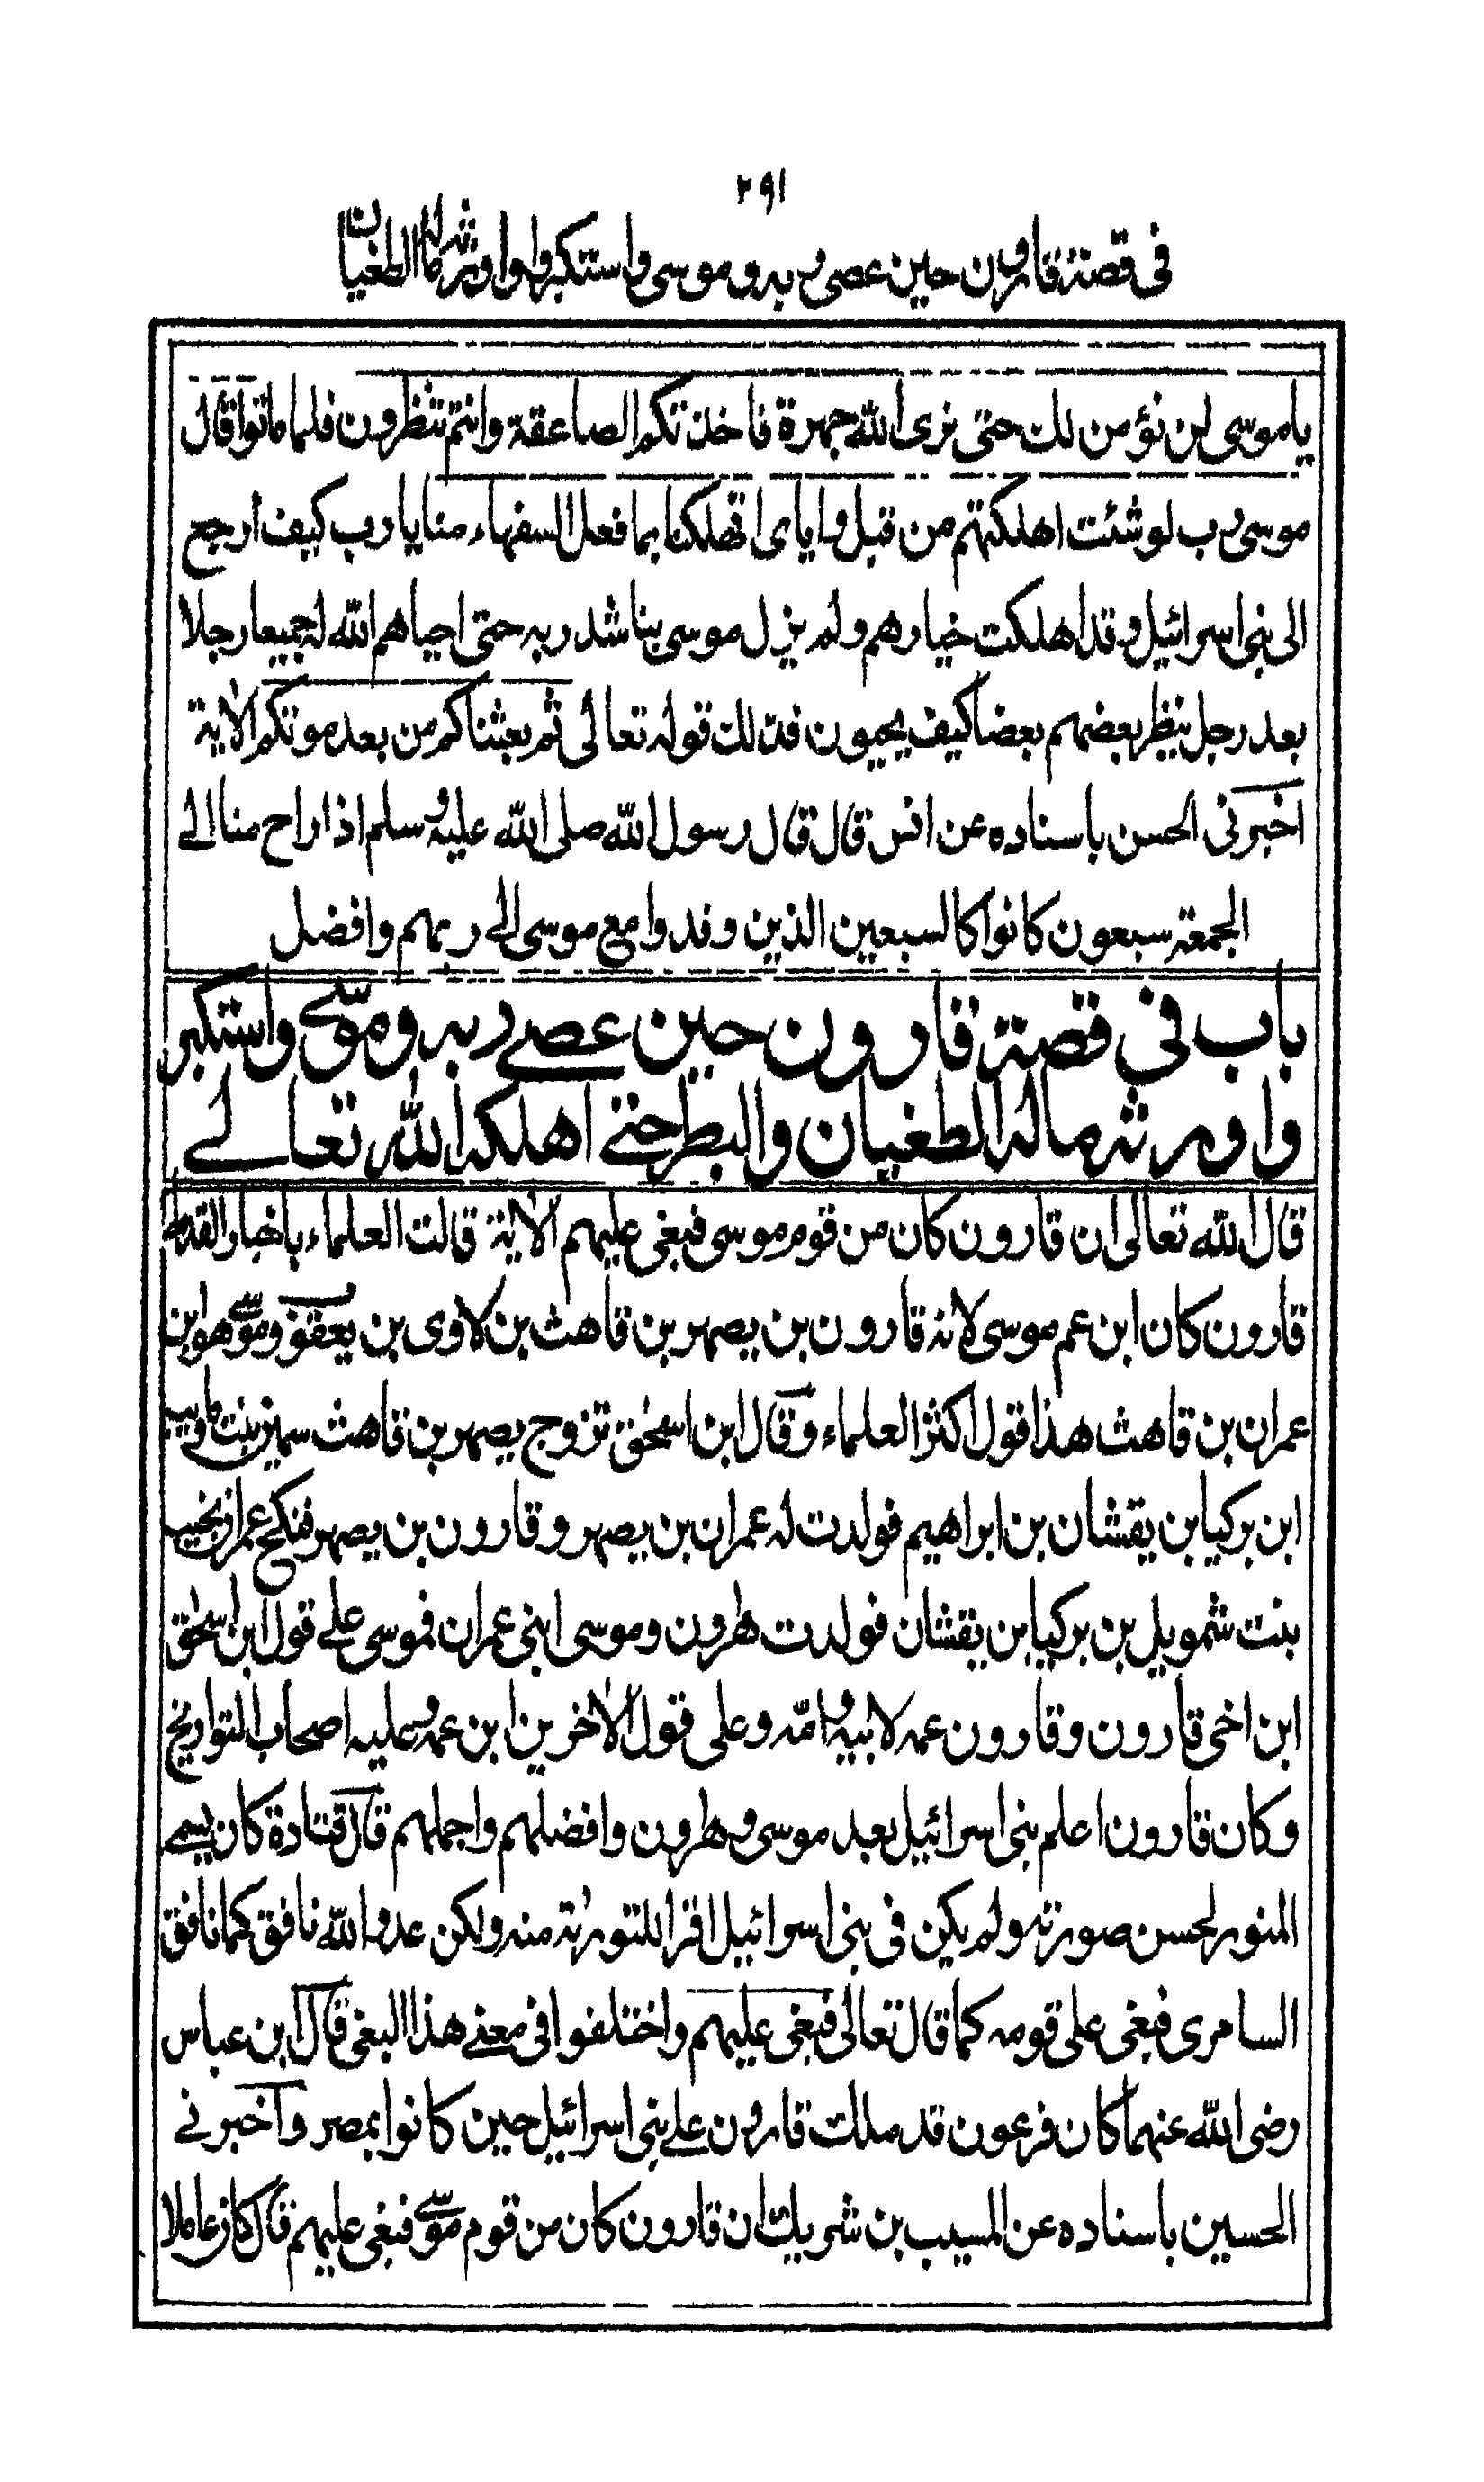 ٢٩١
في قصة قارون حين عصى ربه وموسى واستكبر واورثه ماله الطغيان
ياموسى لن نؤمن لك حتى نرى الله جهرة فاخذتكم الصاعقة وانتم تنظرون فلما ماتوا قال
موسى رب لو شئت اهلكتهم من قبل واياى اتهلكنا بما فعل السفهاء منا يا رب كيف ارجع
الى بنى اسرائيل وقد اهلكت خيارهم ولم يزل موسى يناشد ربه حتى احياهم الله له جميعا رجلا
بعد رجل ينظر بعضهم بعضا كيف يحيون فذلك قوله تعالى ثم بعثناكم من بعد موتكم الاية
اخبرنى الحسن باسناده عن انس قال قال رسول الله صلى الله عليه وسلم اذا راح منا الے
الجمعة سبعون كانوا كالسبعين الذين وفدوا مع موسى الے ربهم وافضل
باب فى قصة قارون حين عصے ربه وموسى واستكبر
واورثه ماله الطغيان والبطر حتے اهلكه الله تعالے
قال الله تعالى ان قارون كان من قوم موسى فبغى عليهم الاية قالت العلماء باخبار القدماء
قارون كان ابن عم موسى لانه قارون بن يصهر بن قاهث بن لاوى بن يعقوب وموسى هو ابن
عمران بن قاهث هذا قول اكثر العلماء وقال ابن اسحق تزوج يصهر بن قاهث سمين بنت
ابن بركيا بن يقشان بن ابراهيم فولدت له عمران بن يصهر وقارون بن يصهر فنكح عمران نجيب
بنت شمويل بن بركيا بن يقشان فولدت هرون وموسى ابنى عمران فموسى علے قول ابن اسحق
ابن اخى قارون وقارون عمه لابيه وامه وعلى قول الاخرين ابن عمه وعليه اصحاب التواريخ
وكان قارون اعلم بنى اسرائيل بعد موسى وهرون وافضلهم واجملهم قال قتادة كان يسمے
المنور لحسن صورته ولم يكن فى بنى اسرائيل اقرا للتورىة منه ولكن عدو الله نافق كما نافق
السامرى فبغى على قومه كما قال تعالى فبغى عليهم واختلفوا فى معنے هذا البغى قال ابن عباس
رضى الله عنهما كان فرعون قد ملك قارون علے بنى اسرائيل حين كانوا بمصر واخبرنے
الحسين باسناده عن المسيب بن شريك ان قارون كان من قوم موسى فبغى عليهم قال كان عاملا